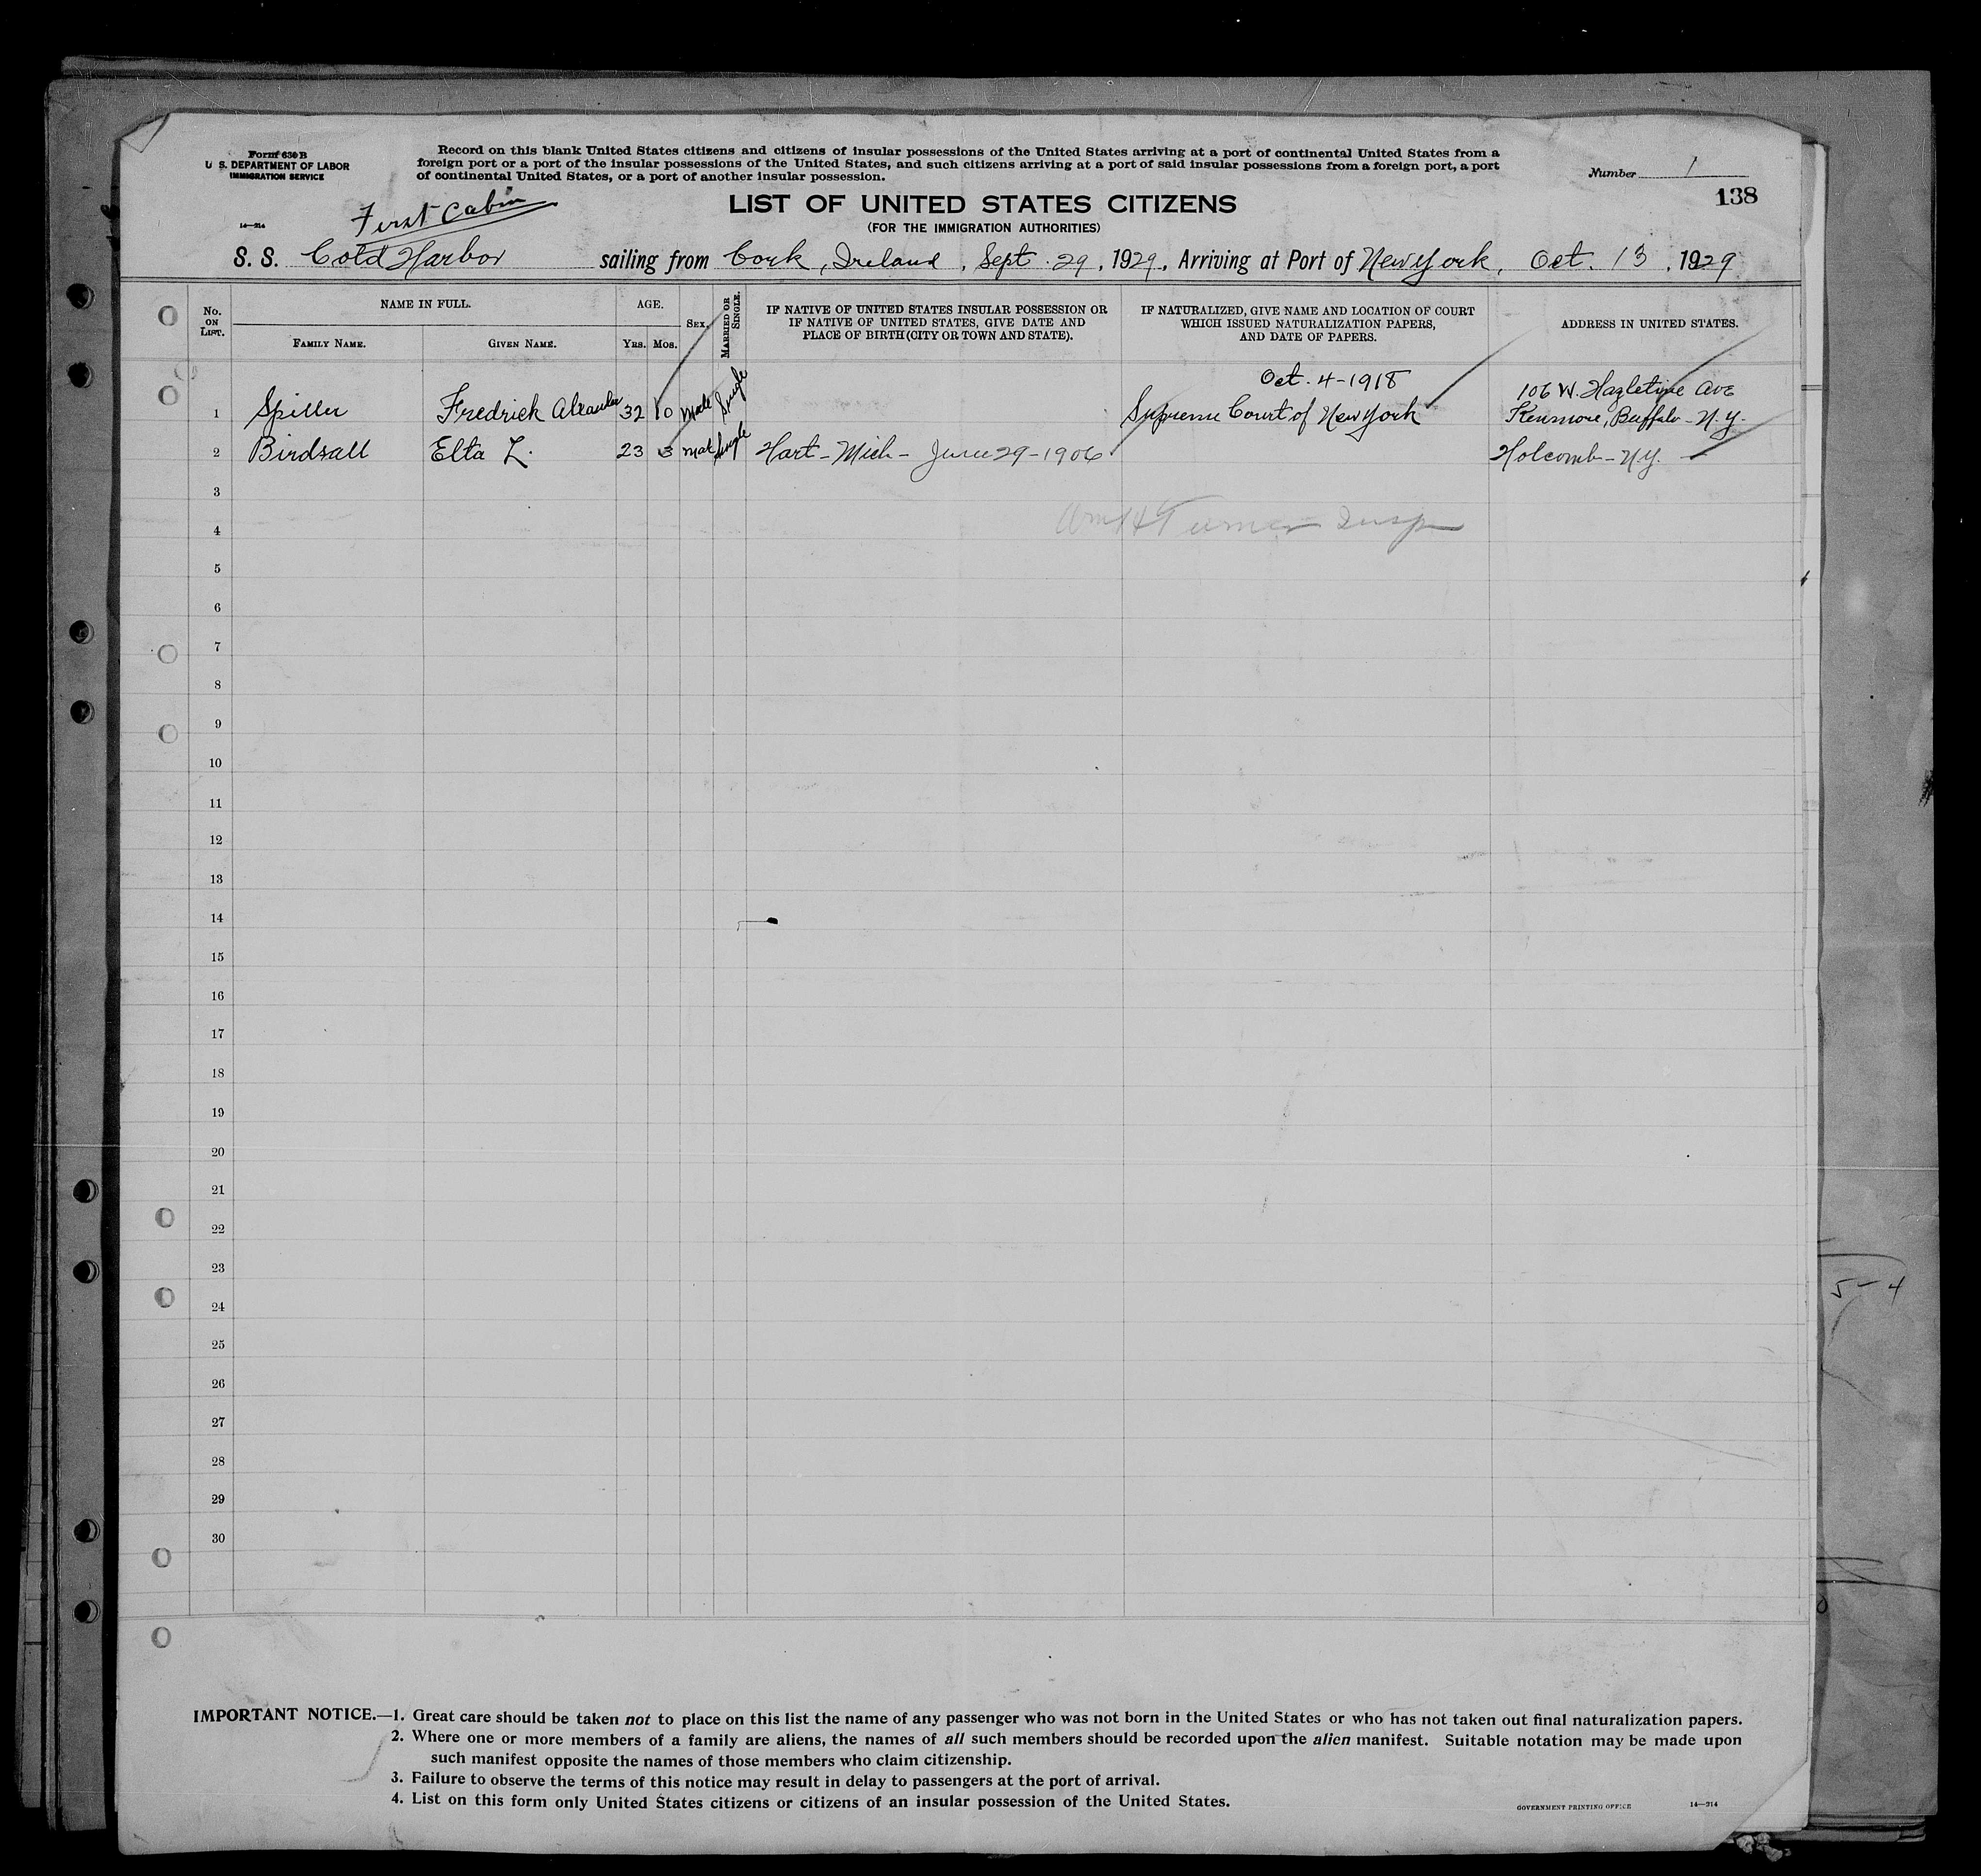 Form 630 B
U S. DEPARTMENT OF LABOR
IMMIGRATION SERVICE
Record on this blank United States citizens and citizens of insular possessions of the United States arriving at a port of continental United States from a
foreign port or a port of the insular possessions of the United States, and such citizens arriving at a port of said insular possessions from a foreign port, a port
of continental United States, or a port of another insular possession.
Number 1
138
14—314
First Cabin
LIST OF UNITED STATES CITIZENS
(FOR THE IMMIGRATION AUTHORITIES)
S. S. Cold Harbor sailing from Cork, Ireland, Sept. 29, 1929, Arriving at Port of New York, Oct. 13, 1929
No. ON LIST.
NAME IN FULL.
FAMILY NAME. GIVEN NAME.
AGE.
YRS. MOS.
SEX.
MARRIED OR SINGLE.
IF NATIVE OF UNITED STATES INSULAR POSSESSION OR
IF NATIVE OF UNITED STATES, GIVE DATE AND
PLACE OF BIRTH (CITY OR TOWN AND STATE).
IF NATURALIZED, GIVE NAME AND LOCATION OF COURT
WHICH ISSUED NATURALIZATION PAPERS,
AND DATE OF PAPERS.
ADDRESS IN UNITED STATES.
Oct. 4-1918 106 W. Hazletine Ave
1 Spiller Fredrick Alexander 32 10 Male Single Supreme Court of New York Kenmore, Buffalo - N.Y.
2 Birdsall Elta L. 23 3 Mal Single Hart - Mich - June 29-1906 Holcomb - N.Y.
3
4 Wm H Turner Insp
5
6
7
8
9
10
11
12
13
14
15
16
17
18
19
20
21
22
23
24
25
26
27
28
29
30
5-4
IMPORTANT NOTICE.—1. Great care should be taken not to place on this list the name of any passenger who was not born in the United States or who has not taken out final naturalization papers.
2. Where one or more members of a family are aliens, the names of all such members should be recorded upon the alien manifest. Suitable notation may be made upon
such manifest opposite the names of those members who claim citizenship.
3. Failure to observe the terms of this notice may result in delay to passengers at the port of arrival.
4. List on this form only United States citizens or citizens of an insular possession of the United States.
GOVERNMENT PRINTING OFFICE 14—314